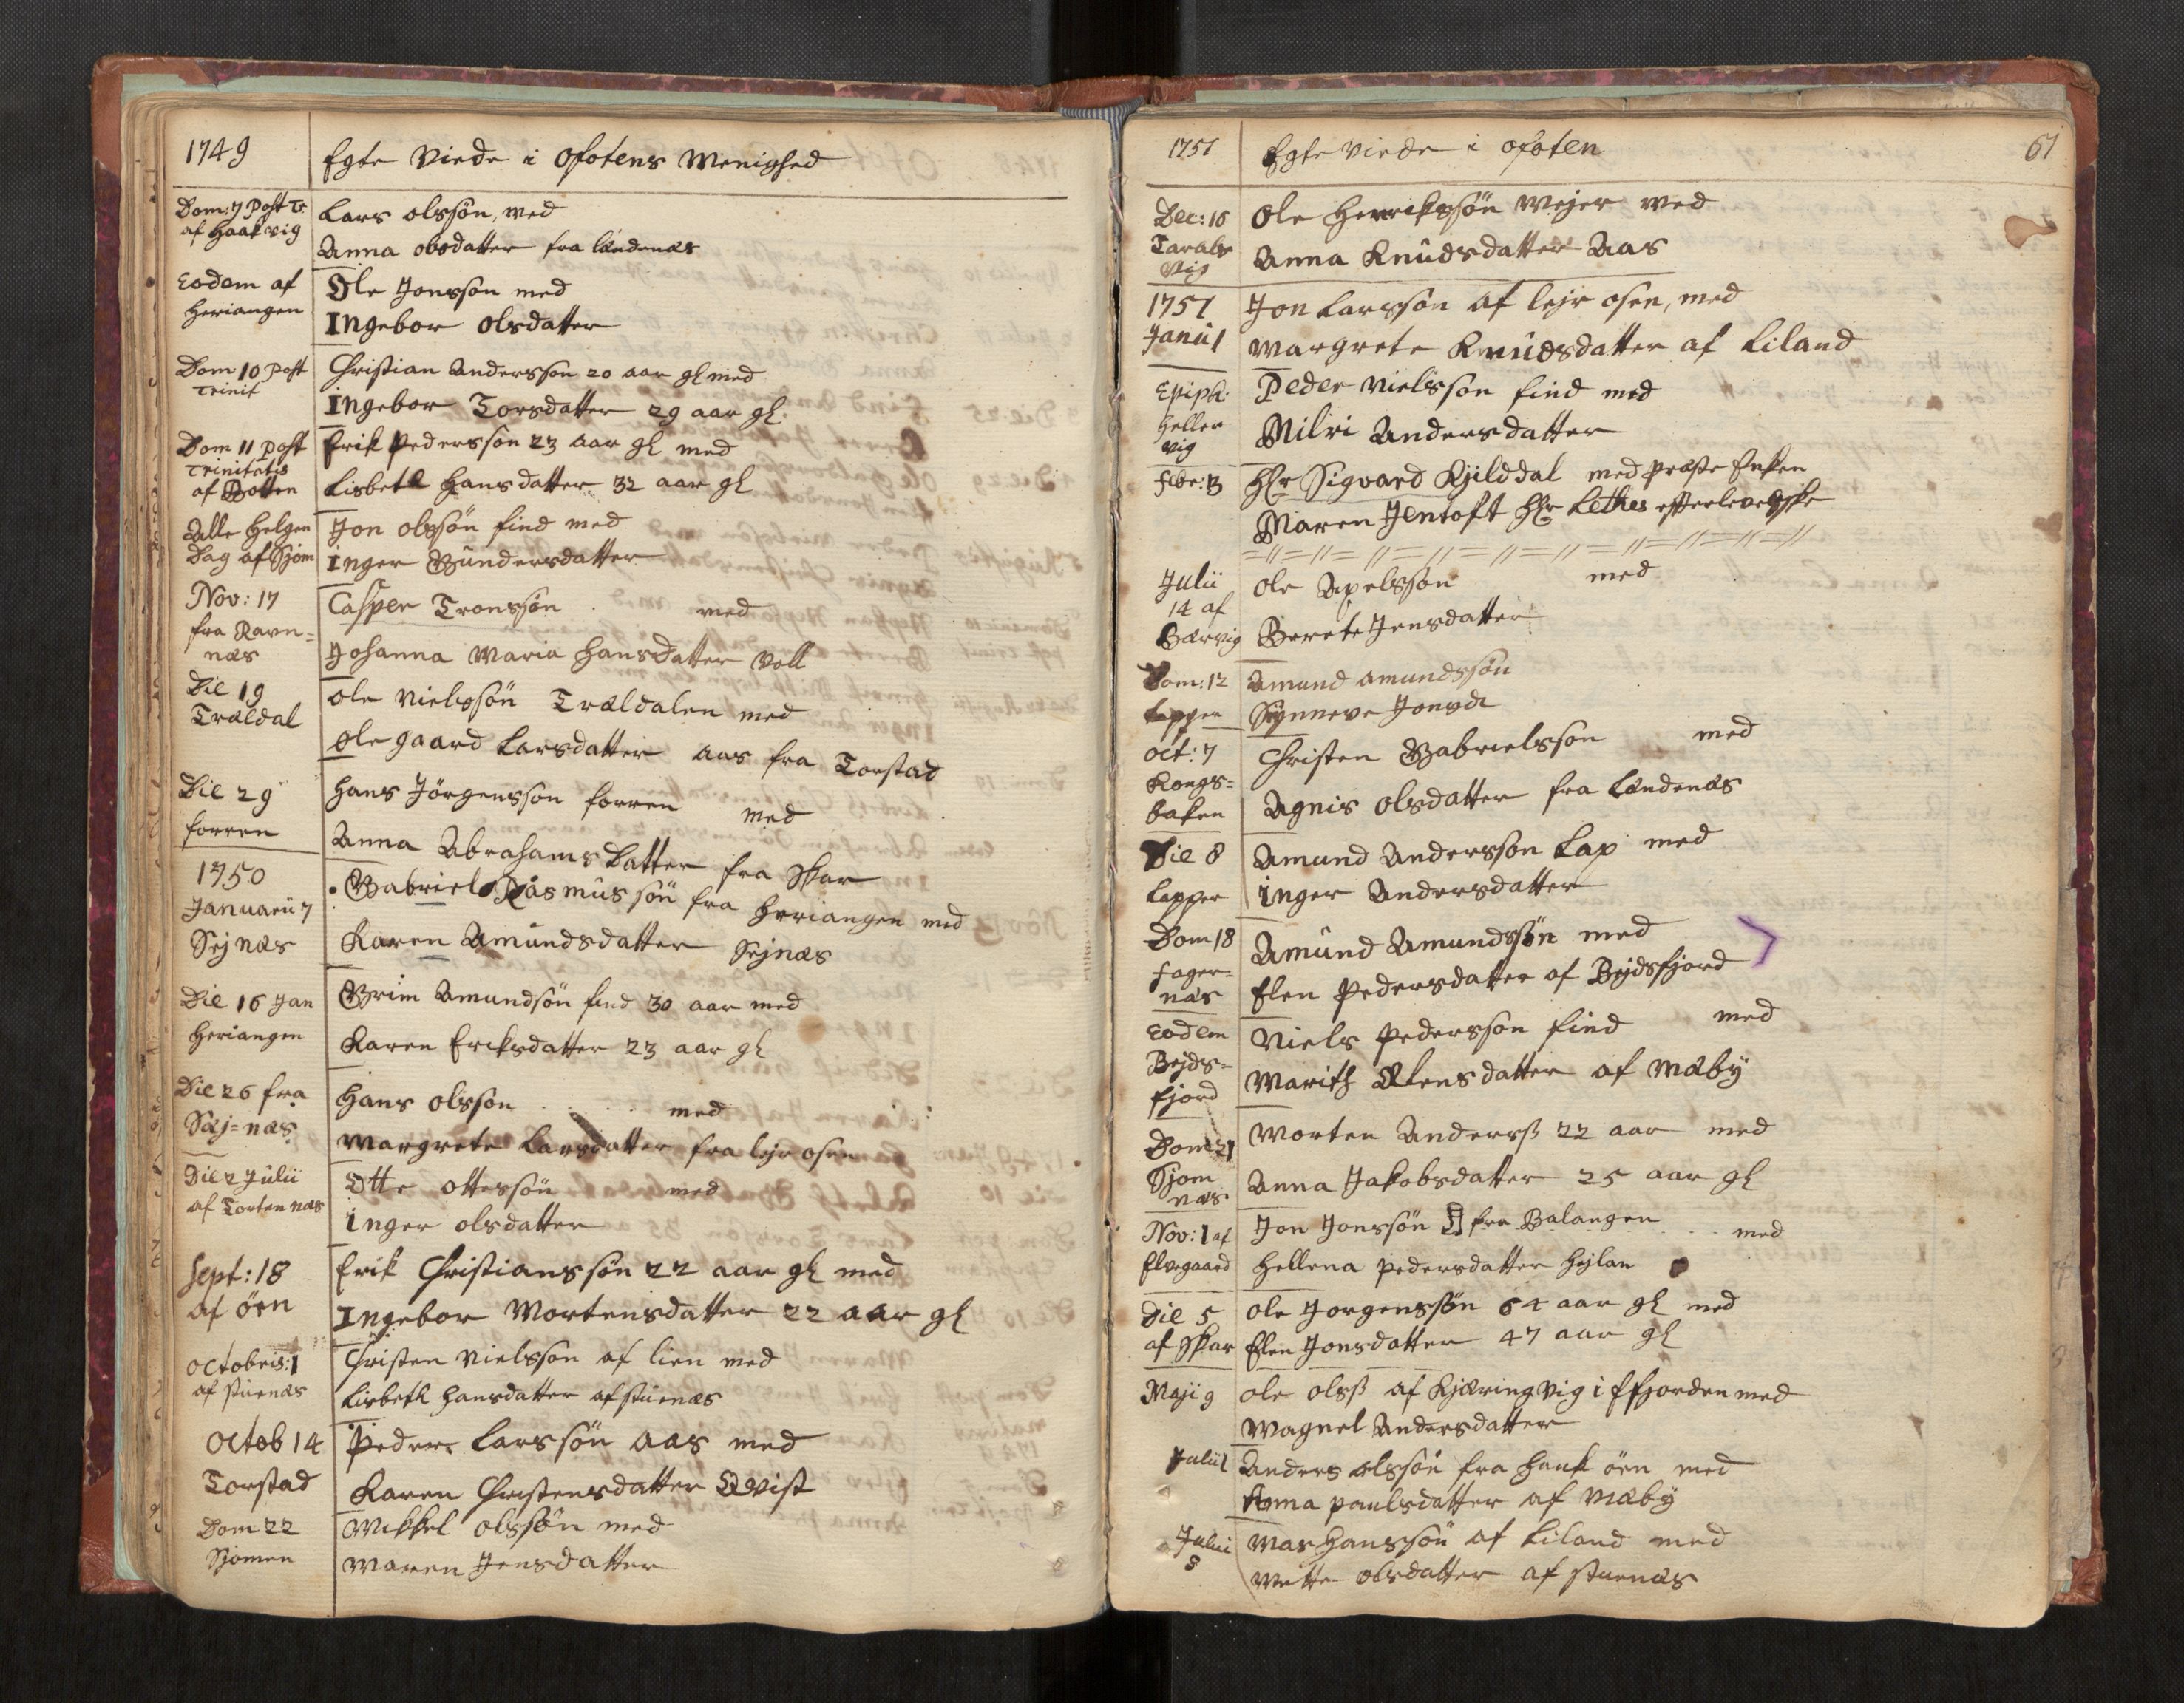 1749
Egte Viede i Ofotens Menighed
Dom: 7 Post Tr.
af Haakvig
Lars Olssøn, med
Anna Olsdatter fra Lændenæs
Eodem af
Heriangen
Ole Jonssøn med
Ingebor Olsdatter
Dom 10 post
Trinit
Christian Anderssøn 20 aar gl med
Ingebor Torsdatter 29 aar gl.
Dom 11 post
Trinitatis
af Botten
Erik Pederssøn 23 aar gl med
Lisbeth Hansdatter 32 aar gl
Alle Helgen
Dag af Sjom
Jon Olssøn find med
Inger Gundersdatter
Nov: 17
fra Ravn=
næs
Casper Tronssøn med
Johanna Maria Hansdatter Voll
Die 19
Trældal
Ole Nielssøn Trældalen med
Olegaard Larsdatter Aas fra Torstad
Die 29
forren
Hans Jørgenssøn forren med
Anna Abrahams Datter fra Skar
1750
Januarii 7
Sejnæs
Gabriel Rasmussøn fra Heriangen med
Karen Amundsdatter Sejnæs
Die 16 Jan
Heriangen
Grim Amundsøn find 30 aar med
Karen Eriksdatter 23 aar gl
Die 26 fra
Sæj=næs
Hans Olssøn med
Margrete Larsdatter fra lejr osen
Die 2 Julii
af Tortennæs
Otte Ottessøn med
Inger Olsdatter
Sept: 18
af øen
Erik Christianssøn 22 aar gl med
Ingebor Mortensdatter 22 aar gl
Octobris: 1
af stuenæs
Christen Nielssøn af lien med
Lisbeth Hansdatter af stuenæs
Octob 14
Torstad
Peder Larssøn Aas med
Karen Christensdatter Qvist
Dom 22
Sjomen
Mikkel Olssøn med
Maren Jensdatter
1751
Egte Viede i Ofoten
61
Dec: 18
Taralsvig
Ole Henrickssøn Mejer med
Anna Knudsdatter Aas
1751
Janu 1
Jon Larssøn af lejr osen, med
Margrete Knudsdatter af Liland
Epiph:
Hellervig
Peder Nielssøn find med
Milri Andersdatter
Febr: 3
Hr Sigvard Kjilddal med Præste Enken
Maren Jentoft Hr Lethes efterlevelske
Julii
14 af
Bærvig
Ole Apelssøn med
Berete Jensdatter
Dom: 12
Lapper
Amund Amundssøn
Synneve Jonsdr
Oct: 7
Kongs=
baken
Christen Gabrielssøn med
Agnis Olsdatter fra Lændenæs
Die 8
Lapper
Amund Anderssøn Lap med
Inger Andersdatter
Dom 18
Fager=
næs
Amund Amundssøn med
Elen Pedersdatter af Bejdsfjord
Eodem
Bejds=
fjord
Niels Pederssøn find med
Marith Elensdatter af Mæby
Dom 21
Sjom
næs
Morten Anderss 22 aar med
Anna Jakobsdatter 25 aar gl
Nov: 1 af
Elvegaard
Jon Jonssøn fra Balangen med
Hellena Pedersdatter Hejlan
Die 5
af Skar
Ole Jorgenssøn 64 aar gl med
Elen Jonsdatter 47 aar gl
Maji 9
Ole Olss af Kjæringvig i Effjorden med
Magnel Andersdatter
Julii 1
Anders Olssøn fra Hauk øen med
Anna Paulsdatter af Mæby
Julii
8
Mas Hanssøn af Liland med
Mette Olsdatter af stuenæs